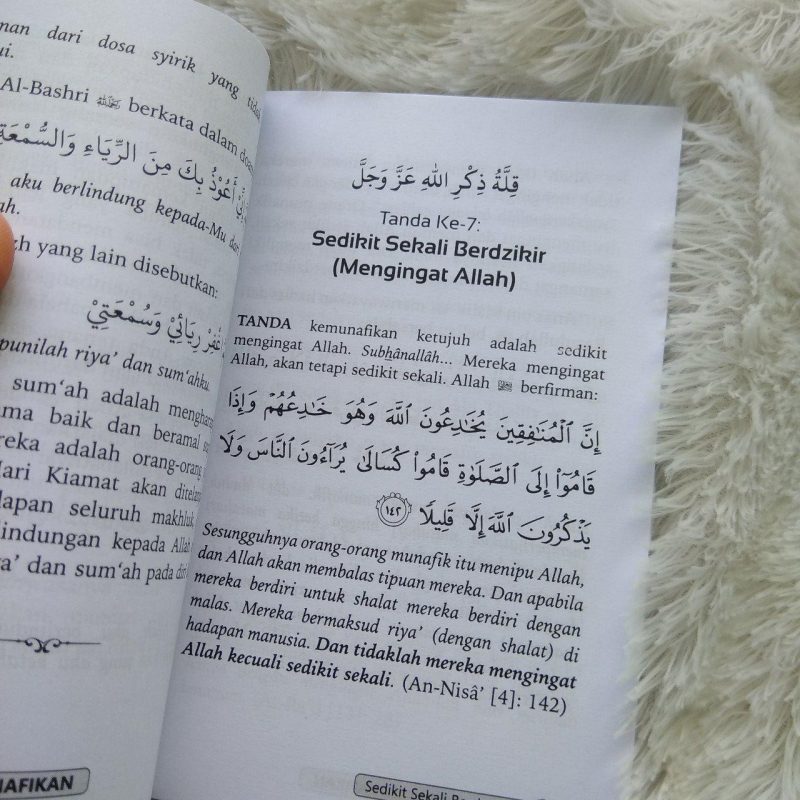 dari dosa syirik yang
Al-Bashri berkata dalam
أَعُوْذُ بِكَ مِنَ الرِّيَاءِ وَالسُّمْعَةِ
aku berlindung kepada-Mu dari
yang lain disebutkan:
رِيَائِيْ وَسُمْعَتِيْ
riya’ dan sum‘ahku.
sum‘ah adalah
baik dan beramal
adalah orang-orang
Hari Kiamat akan
seluruh makhluk
kepada Allah
dan sum‘ah pada
قِلَّةُ ذِكْرِ اللهِ عَزَّ وَجَلَّ
Tanda Ke-7:
Sedikit Sekali Berdzikir
(Mengingat Allah)
TANDA kemunafikan ketujuh adalah sedikit
mengingat Allah. Subhânallâh... Mereka mengingat
Allah, akan tetapi sedikit sekali. Allah ﷻ berfirman:
إِنَّ ٱلْمُنَـٰفِقِينَ يُخَـٰدِعُونَ ٱللَّهَ وَهُوَ خَـٰدِعُهُمْ وَإِذَا
قَامُوٓا۟ إِلَى ٱلصَّلَوٰةِ قَامُوا۟ كُسَالَىٰ يُرَآءُونَ ٱلنَّاسَ وَلَا
يَذْكُرُونَ ٱللَّهَ إِلَّا قَلِيلًا ١٤٢
Sesungguhnya orang-orang munafik itu menipu Allah,
dan Allah akan membalas tipuan mereka. Dan apabila
mereka berdiri untuk shalat mereka berdiri dengan
malas. Mereka bermaksud riya’ (dengan shalat) di
hadapan manusia. Dan tidaklah mereka mengingat
Allah kecuali sedikit sekali. (An-Nisâ’ [4]: 142)
Sedikit Sekali